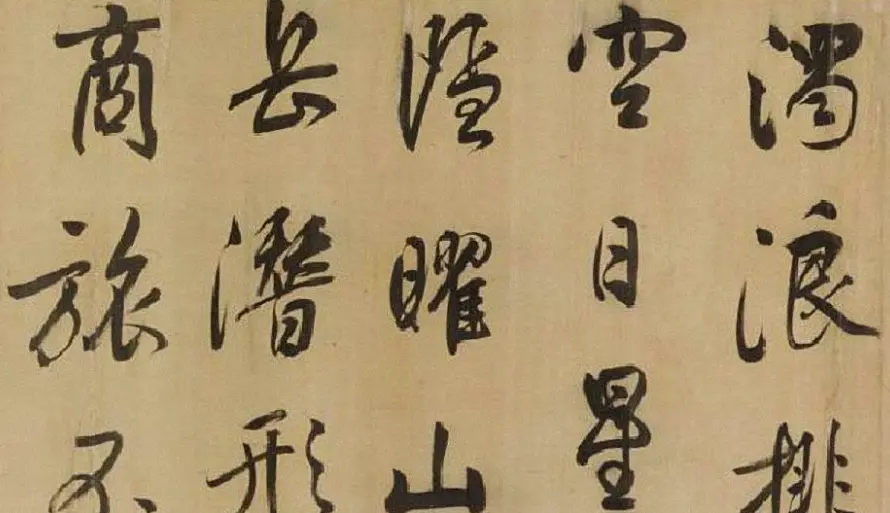 濁浪排
空日星
隱曜山
岳潛形
商旅不